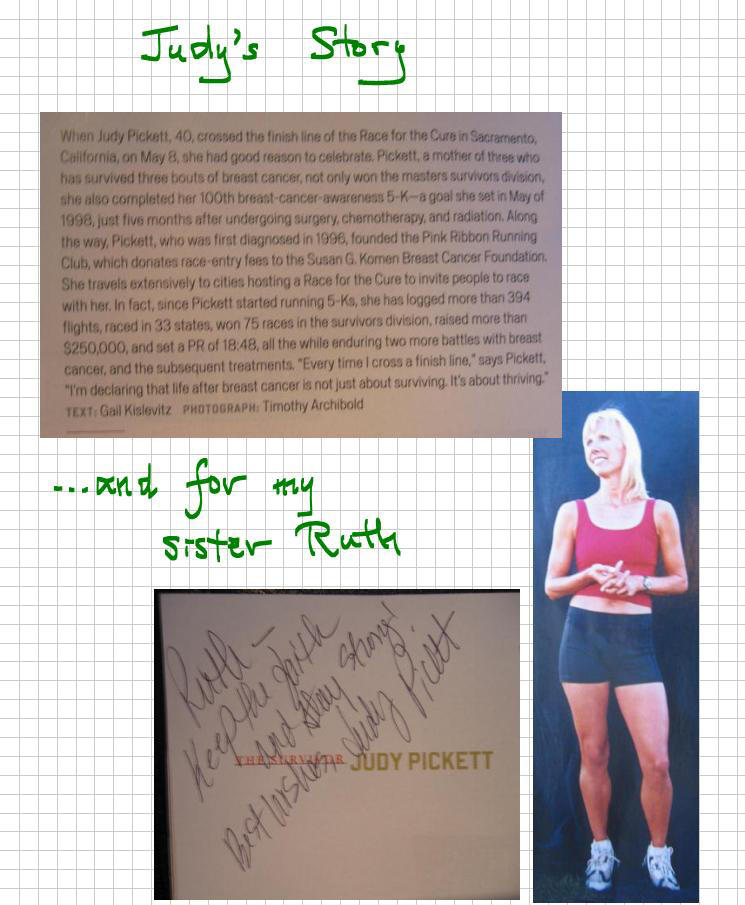 Judy's Story
When Judy Pickett, 40, crossed the finish line of the Race for the Cure in Sacramento,
California, on May 8, she had good reason to celebrate. Pickett, a mother of three who
has survived three bouts of breast cancer, not only won the masters survivors division,
she also completed her 100th breast-cancer-awareness 5-K—a goal she set in May of
1998, just five months after undergoing surgery, chemotherapy, and radiation. Along
the way, Pickett, who was first diagnosed in 1996, founded the Pink Ribbon Running
Club, which donates race-entry fees to the Susan G. Komen Breast Cancer Foundation.
She travels extensively to cities hosting a Race for the Cure to invite people to race
with her. In fact, since Pickett started running 5-Ks, she has logged more than 394
flights, raced in 33 states, won 75 races in the survivors division, raised more than
$250,000, and set a PR of 18:48, all the while enduring two more battles with breast
cancer, and the subsequent treatments. "Every time I cross a finish line," says Pickett,
"I'm declaring that life after breast cancer is not just about surviving. It's about thriving."
TEXT: Gail Kislevitz PHOTOGRAPH: Timothy Archibold
...and for my
sister Ruth
Ruth –
Keep the faith
and stay strong!
Best wishes, Judy Pickett
THE SURVIVOR JUDY PICKETT